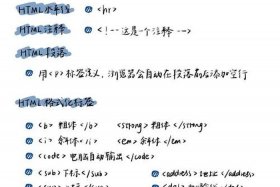 HTML水平线 <hr>
HTML注释 <!--这是个注释-->
HTML段落
用<p>标签定义，浏览器会自动在段落前后添加空行
HTML格式化标签
<b> 粗体 </b> <strong> 粗体 </strong>
<i> 斜体 </i> <em> 斜体 </em>
<code> 电脑自动输出 </code>
<sub> 下标 </sub> <address> </address>
<sup> 上标